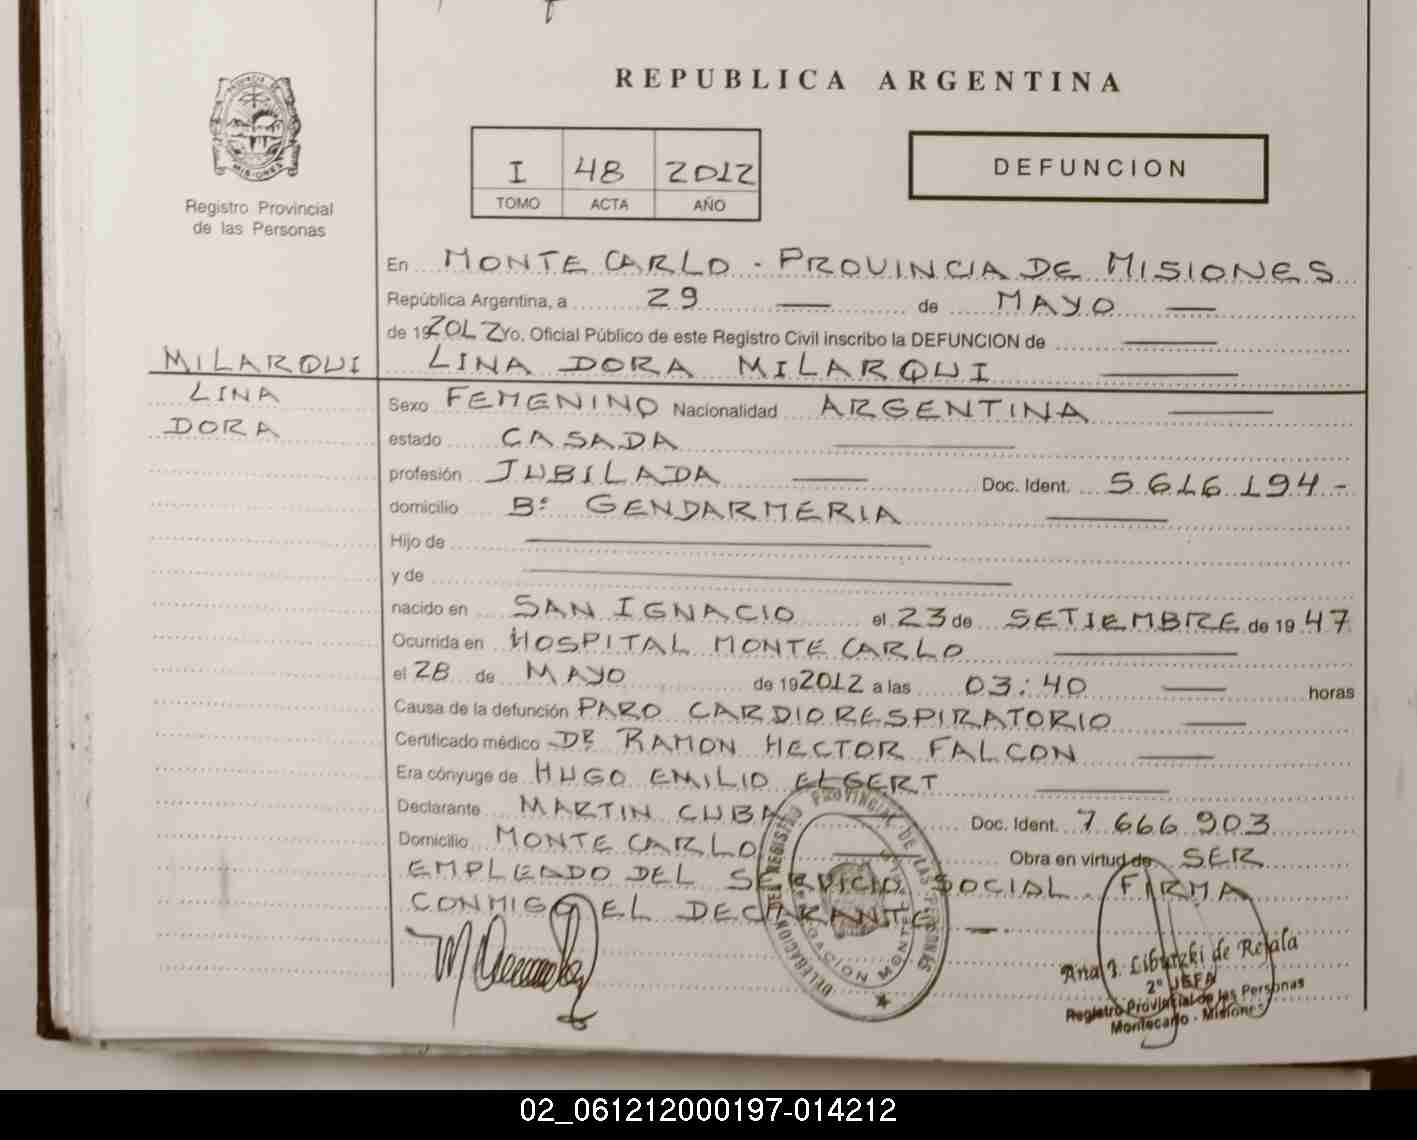 REPUBLICA ARGENTINA
I 48 2012
TOMO ACTA AÑO
DEFUNCION
PROVINCIA DE
MISIONES
Registro Provincial
de las Personas
En MONTE CARLO - PROVINCIA DE MISIONES
República Argentina, a 29 de MAYO
de 192012 Yo, Oficial Público de este Registro Civil inscribo la DEFUNCION de
LINA DORA MILARQUI
MILARQUI
LINA
DORA
Sexo FEMENINO Nacionalidad ARGENTINA
estado CASADA
profesión JUBILADA Doc. Ident. 5.616.194-
domicilio Bº GENDARMERIA
Hijo de
y de
nacido en SAN IGNACIO el 23 de SETIEMBRE de 1947
Ocurrida en HOSPITAL MONTE CARLO
el 28 de MAYO de 192012 a las 03:40 horas
Causa de la defunción PARO CARDIORESPIRATORIO
Certificado médico DR RAMON HECTOR FALCON
Era cónyuge de HUGO EMILIO ELGERT
Declarante MARTIN CUBA Doc. Ident. 7.666.903
Domicilio MONTE CARLO Obra en virtud de SER
EMPLEADO DEL SERVICIO SOCIAL. FIRMA
CONMIGO EL DECLARANTE -
REGISTRO PROVINCIAL DE LAS PERSONAS
DELEGACION
Ana I. Libutzki de Rejala
2º JEFA
Registro Provincial de las Personas
Montecarlo - Misiones
02_061212000197-014212